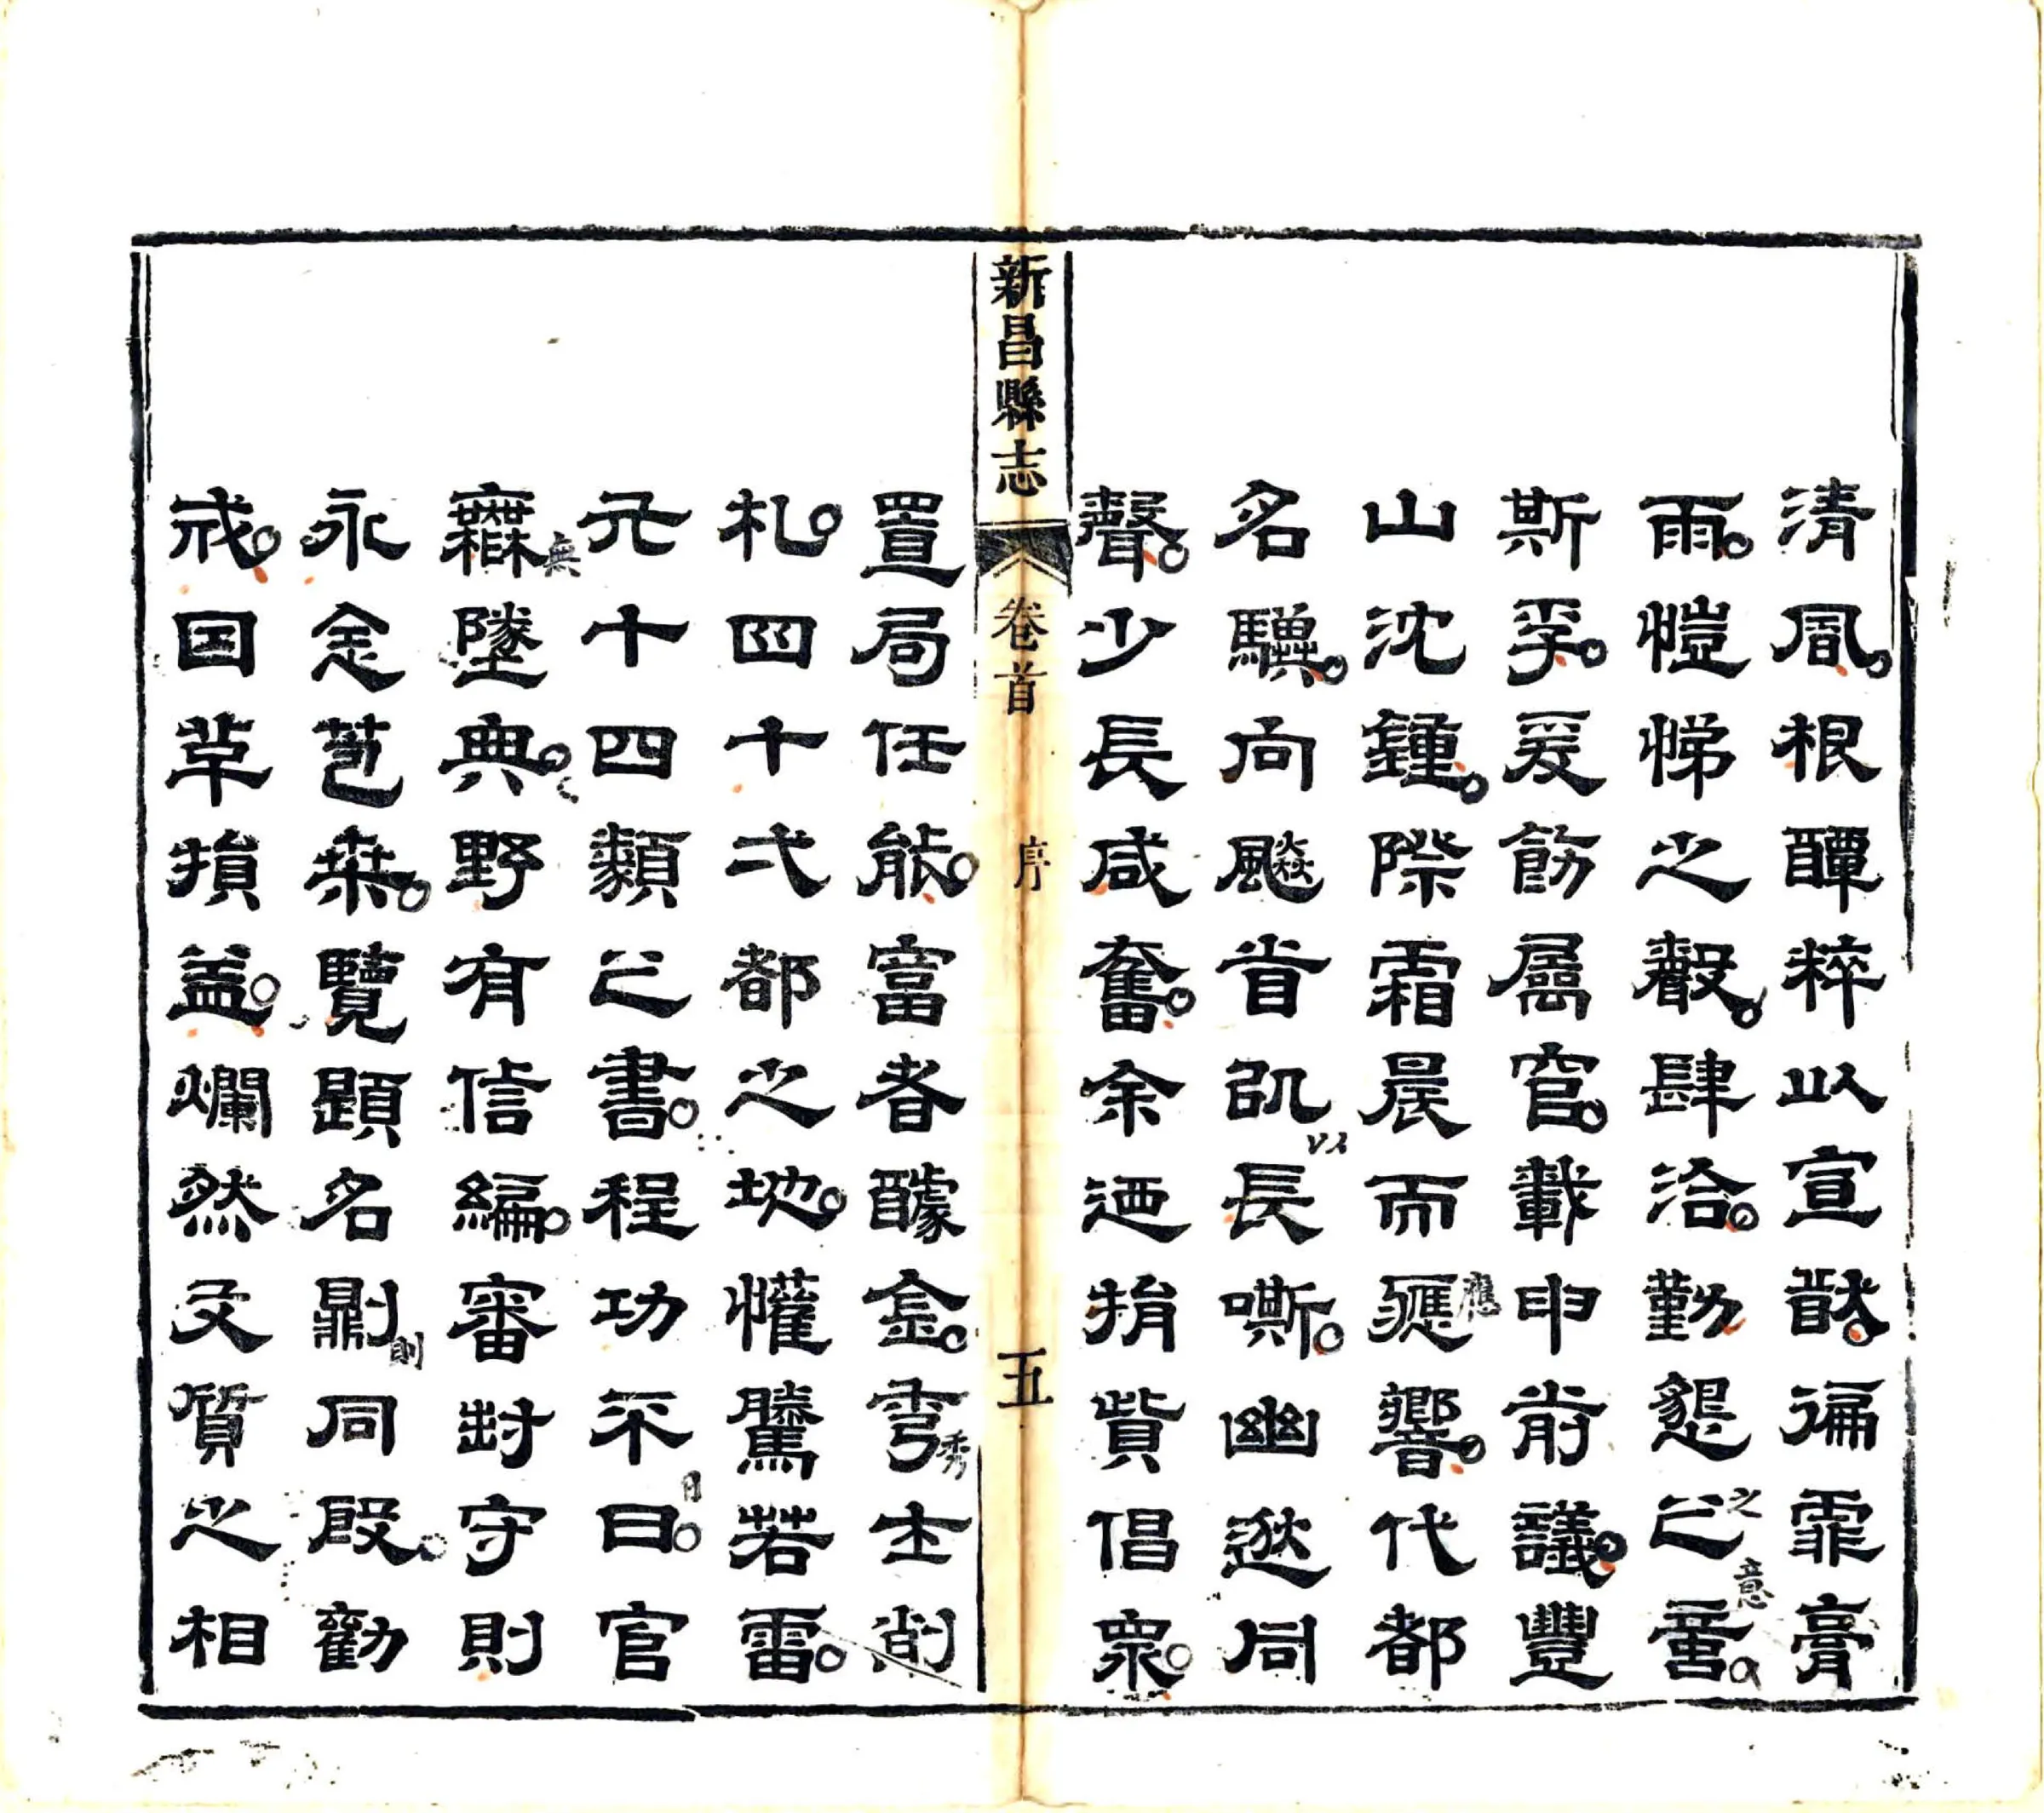 清風根醰粹以宣猷徧霏膏
雨愷悌之聲肆洽勤懇㠯之意
斯孚爰飭屬官載申前議豐
山沈鍾際霜晨而應響代都
名驥向飈首㠯長嘶幽遬同
聲少長咸奮余迺捐貲倡衆
新昌縣志
卷首
序
五
置局任能富者醵金秀士削
札四十弍都之地懽騰若雷
元十四類㠯書程功不日官
無墜典野有信編審封守則
永念苞桑覽題名則同段勸
戒因革損益爛然文質之相
應
秀
無
以
之
意
日
則